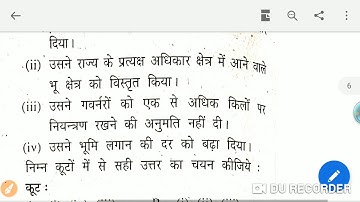 दिया।
(ii) उसने राज्य के प्रत्यक्ष अधिकार क्षेत्र में आने वाले
भू क्षेत्र को विस्तृत किया।
(iii) उसने गवर्नरों को एक से अधिक किलों पर
नियन्त्रण रखने की अनुमति नहीं दी।
(iv) उसने भूमि लगान की दर को बढ़ा दिया।
निम्न कूटों में से सही उत्तर का चयन कीजिये :
कूट :
6
DU RECORDER